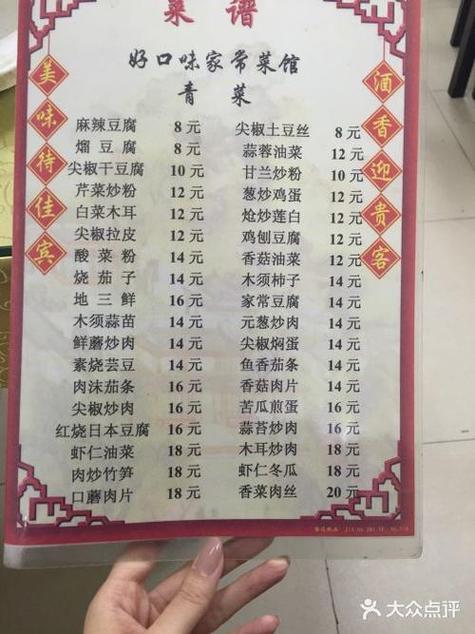 菜谱
好口味家常菜馆
青菜
美味待佳宾
酒香迎贵客
麻辣豆腐 8元
熘豆腐 8元
尖椒干豆腐 10元
芹菜炒粉 12元
白菜木耳 12元
尖椒拉皮 12元
酸菜粉 14元
烧茄子 14元
地三鲜 16元
木须蒜苗 14元
鲜蘑炒肉 14元
素烧芸豆 14元
肉沫茄条 16元
尖椒炒肉 16元
红烧日本豆腐 16元
虾仁油菜 18元
肉炒竹笋 18元
口蘑肉片 18元
尖椒土豆丝 8元
蒜蓉油菜 12元
甘兰炒粉 10元
葱炒鸡蛋 12元
炝炒莲白 12元
鸡刨豆腐 12元
香菇油菜 12元
木须柿子 14元
家常豆腐 14元
元葱炒肉 14元
尖椒焖蛋 14元
鱼香茄条 14元
香菇肉片 14元
苦瓜煎蛋 16元
蒜苔炒肉 16元
木耳炒肉 18元
虾仁冬瓜 18元
香菜肉丝 20元
大众点评